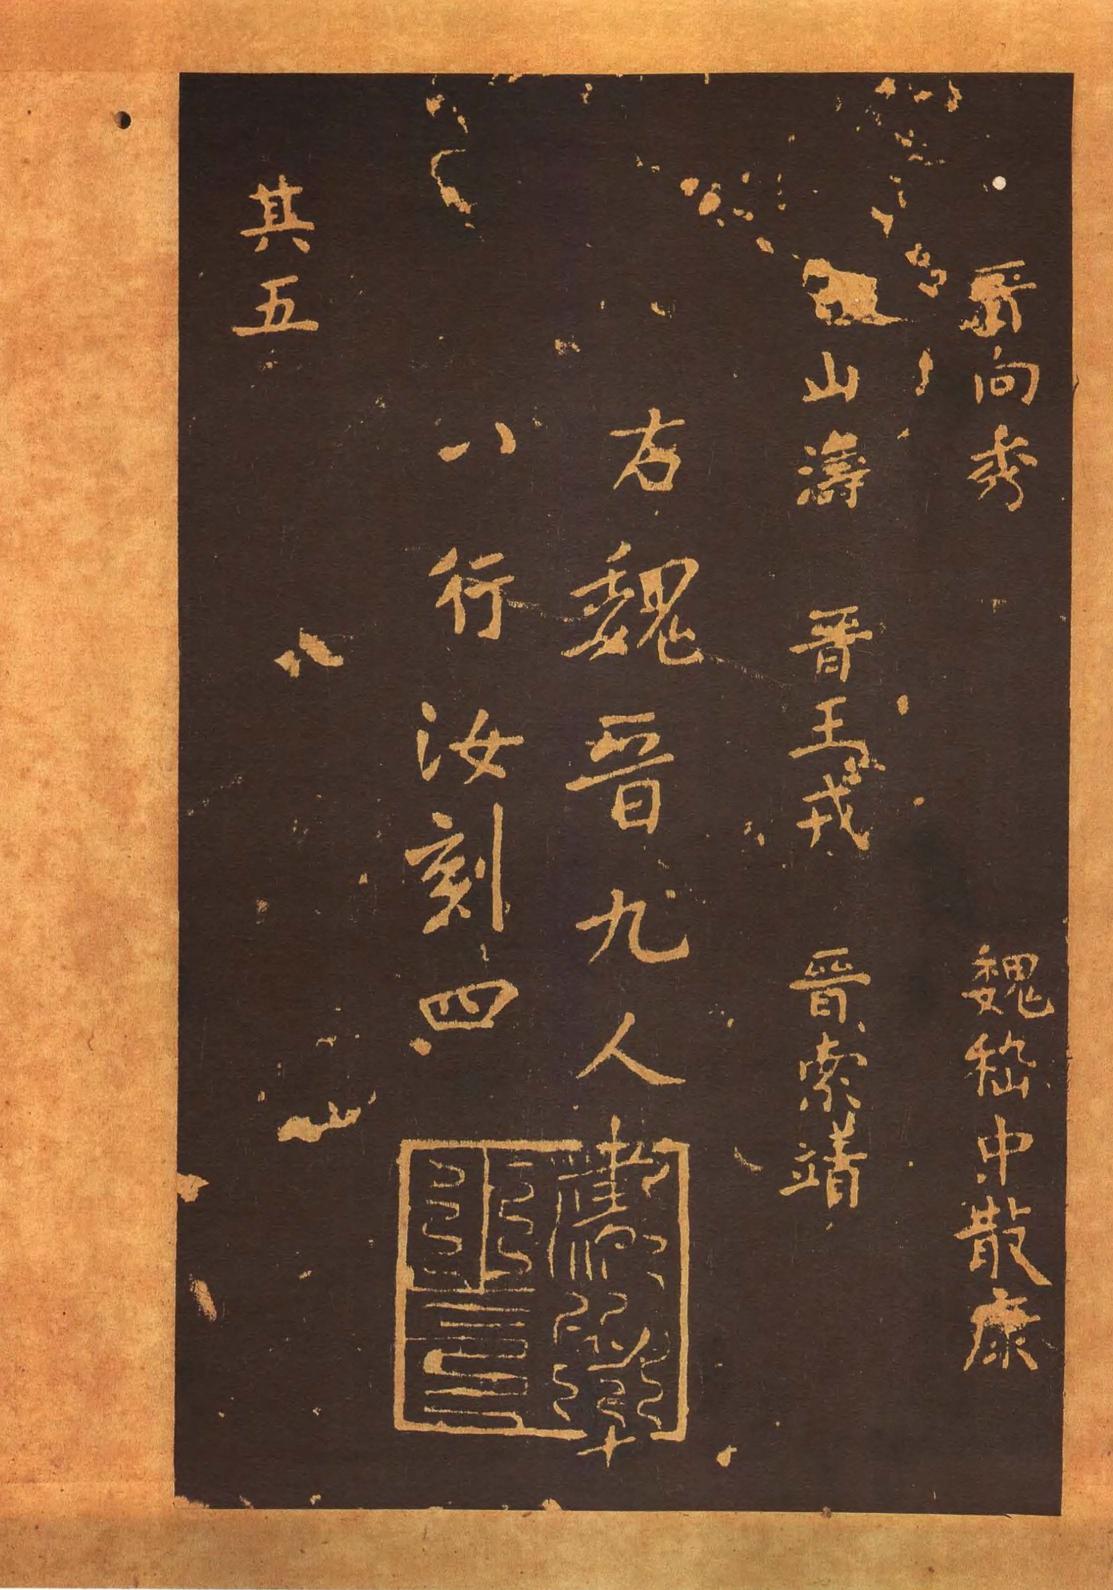 晉向秀 魏嵇中散康
山濤 晉王戎 晉索靖
右魏晉九人書 十
八行汝刻四
其五